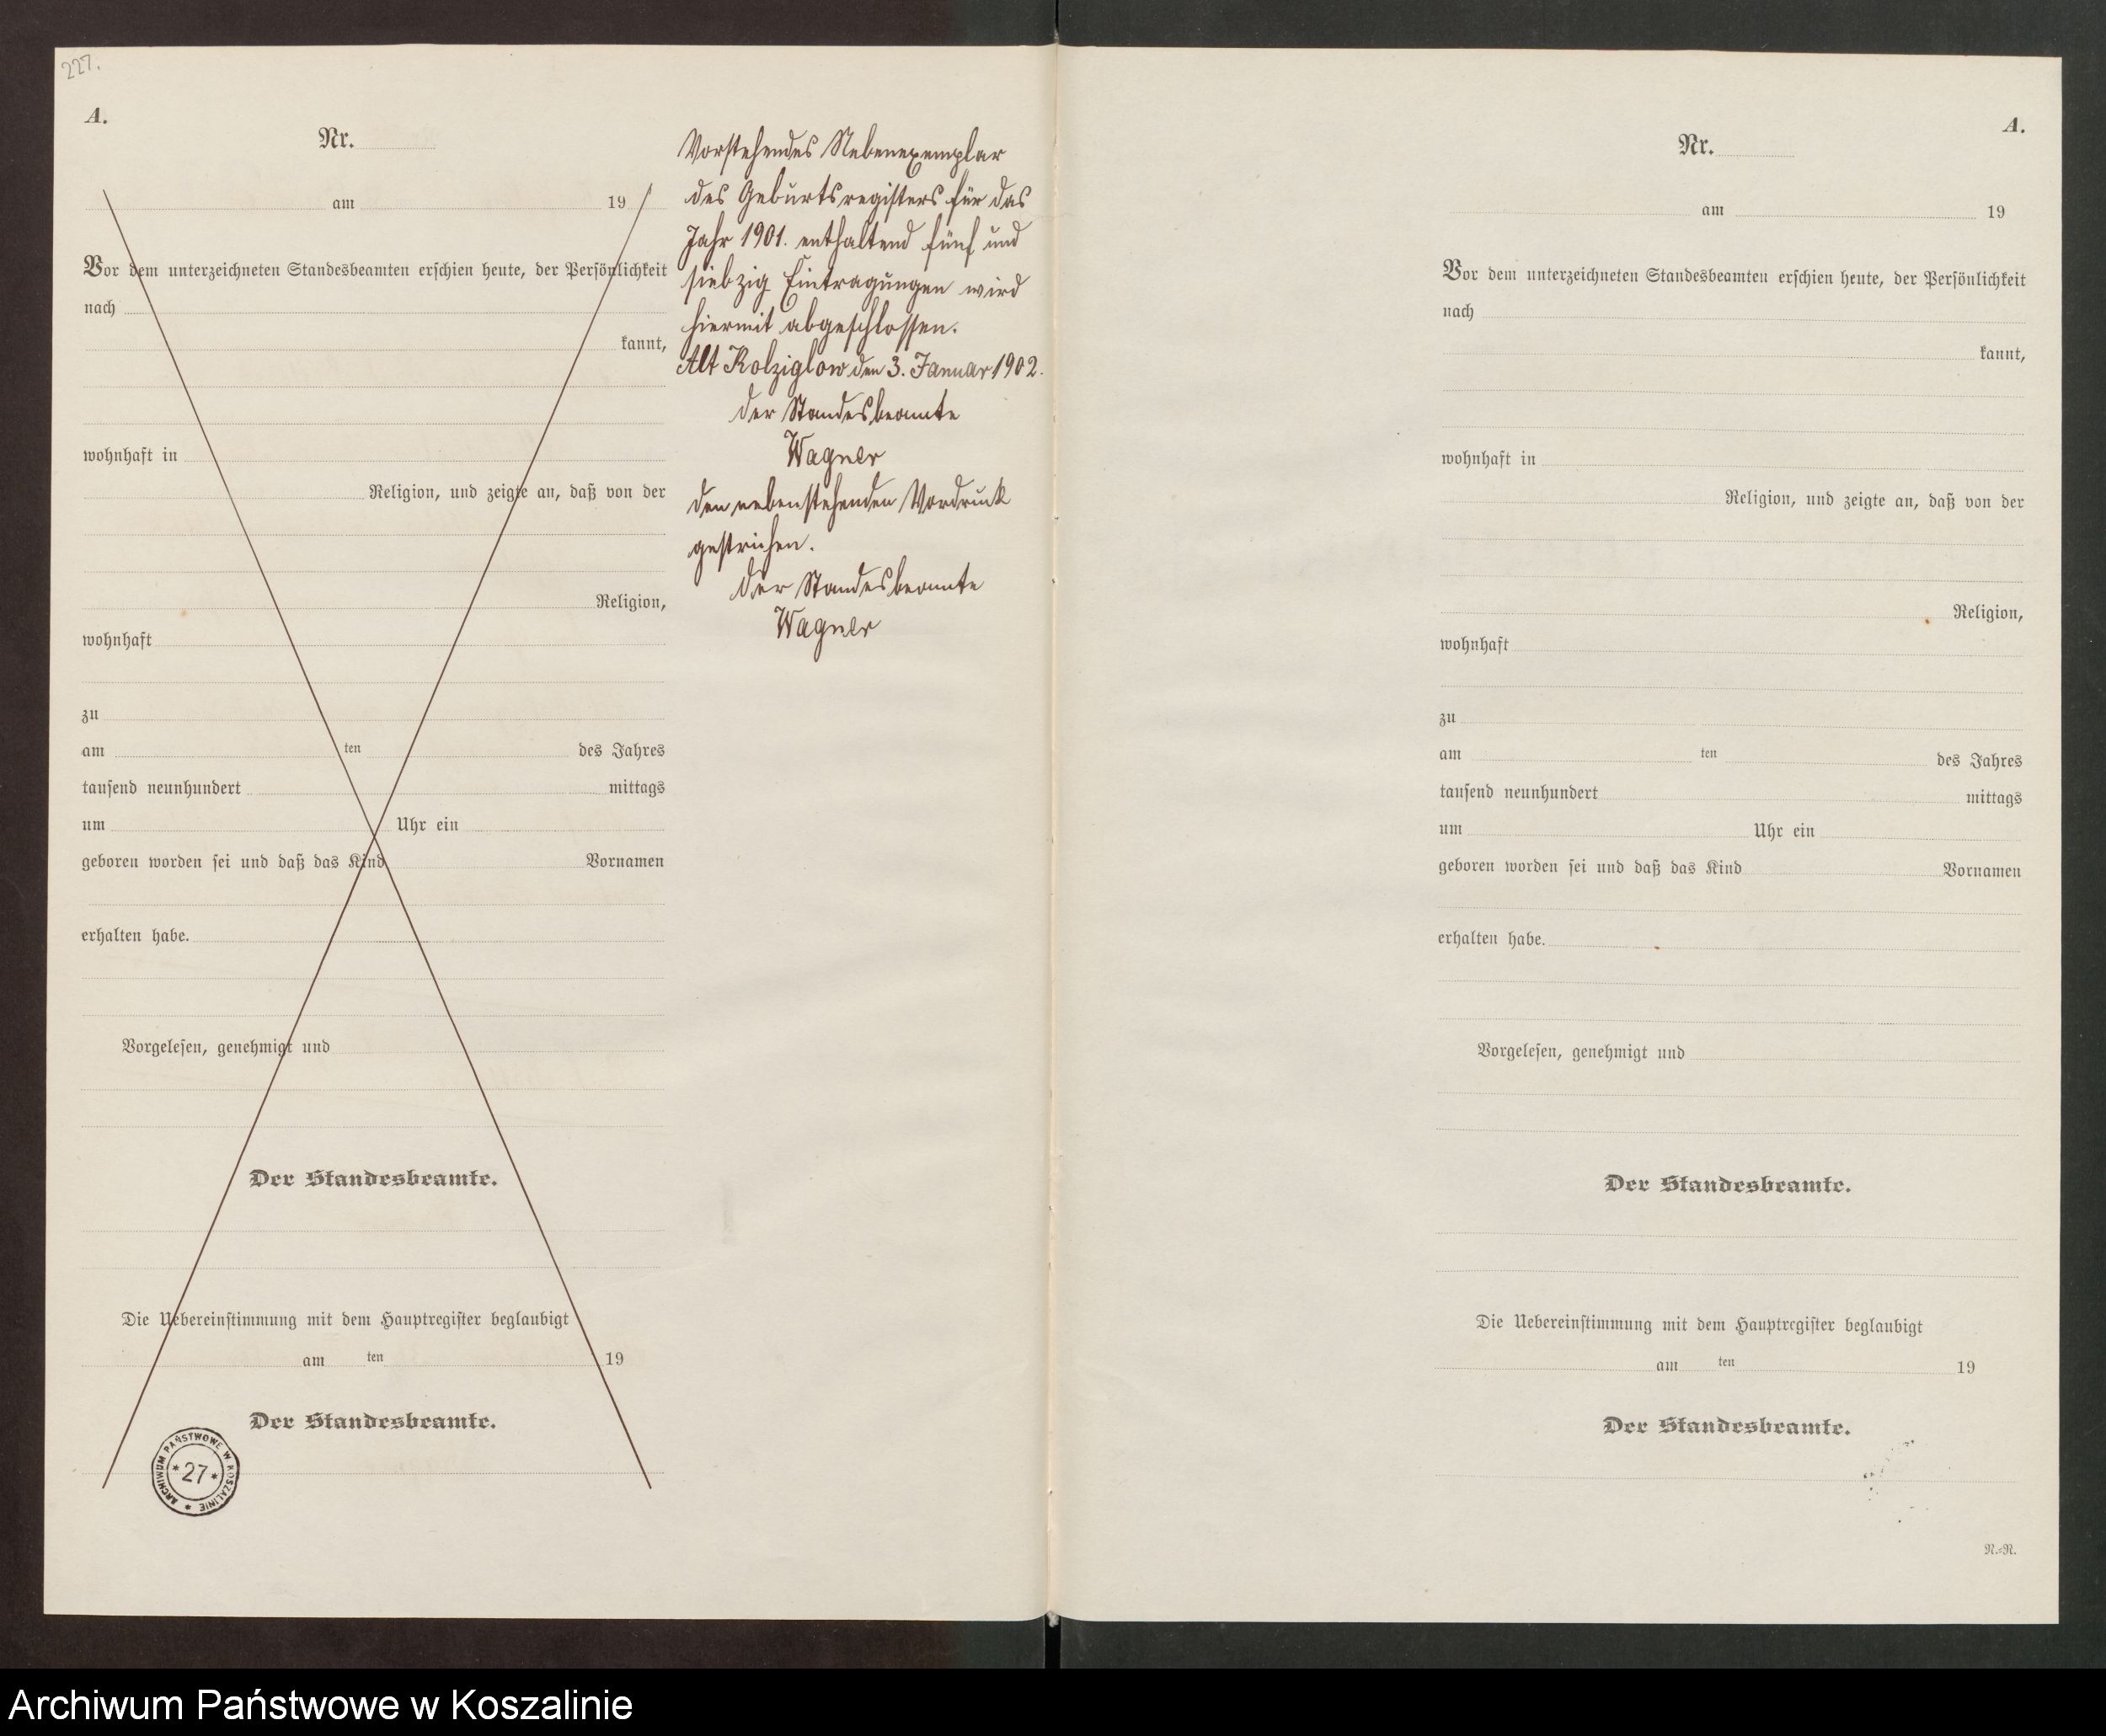 227.
A.
Nr.
am 19
Vor dem unterzeichneten Standesbeamten erschien heute, der Persönlichkeit
nach
kannt,
wohnhaft in
Religion, und zeigte an, daß von der
Religion,
wohnhaft
zu
am ten des Jahres
tausend neunhundert mittags
um Uhr ein
geboren worden sei und daß das Kind Vornamen
erhalten habe.
Vorgelesen, genehmigt und
Der Standesbeamte.
Die Uebereinstimmung mit dem Hauptregister beglaubigt
am ten 19
Der Standesbeamte.
ARCHIWUM PAŃSTWOWE W KOSZALINIE
* 27 *
Vorstehendes Nebenexemplar
des Geburtsregisters für das
Jahr 1901. enthaltend fünf und
siebzig Eintragungen wird
hiermit abgeschlossen.
Alt Kolziglow den 3. Januar 1902.
Der Standesbeamte
Wagner
Den nebenstehenden Vordruck
gestrichen.
Der Standesbeamte
Wagner
A.
Nr.
am 19
Vor dem unterzeichneten Standesbeamten erschien heute, der Persönlichkeit
nach
kannt,
wohnhaft in
Religion, und zeigte an, daß von der
Religion,
wohnhaft
zu
am ten des Jahres
tausend neunhundert mittags
um Uhr ein
geboren worden sei und daß das Kind Vornamen
erhalten habe.
Vorgelesen, genehmigt und
Der Standesbeamte.
Die Uebereinstimmung mit dem Hauptregister beglaubigt
am ten 19
Der Standesbeamte.
N.=R.
Archiwum Państwowe w Koszalinie